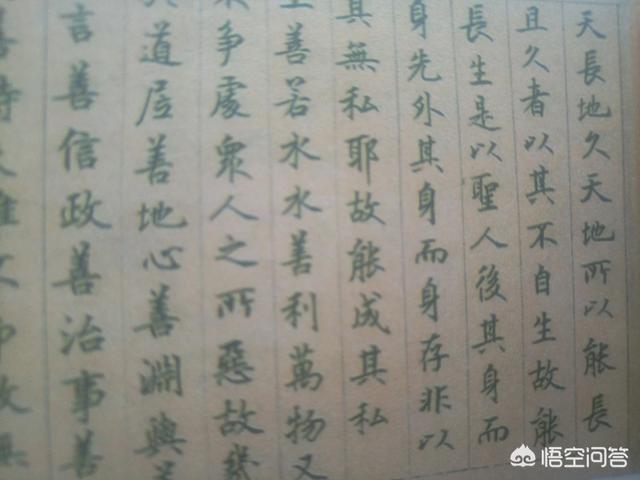 天長地久天地所以能長
且久者以其不自生故能
長生是以聖人後其身而
身先外其身而身存非以
其無私耶故能成其私
上善若水水善利萬物又
争處衆人之所惡故幾
道居善地心善淵與善
言善信政善治事善
故無
悟空问答